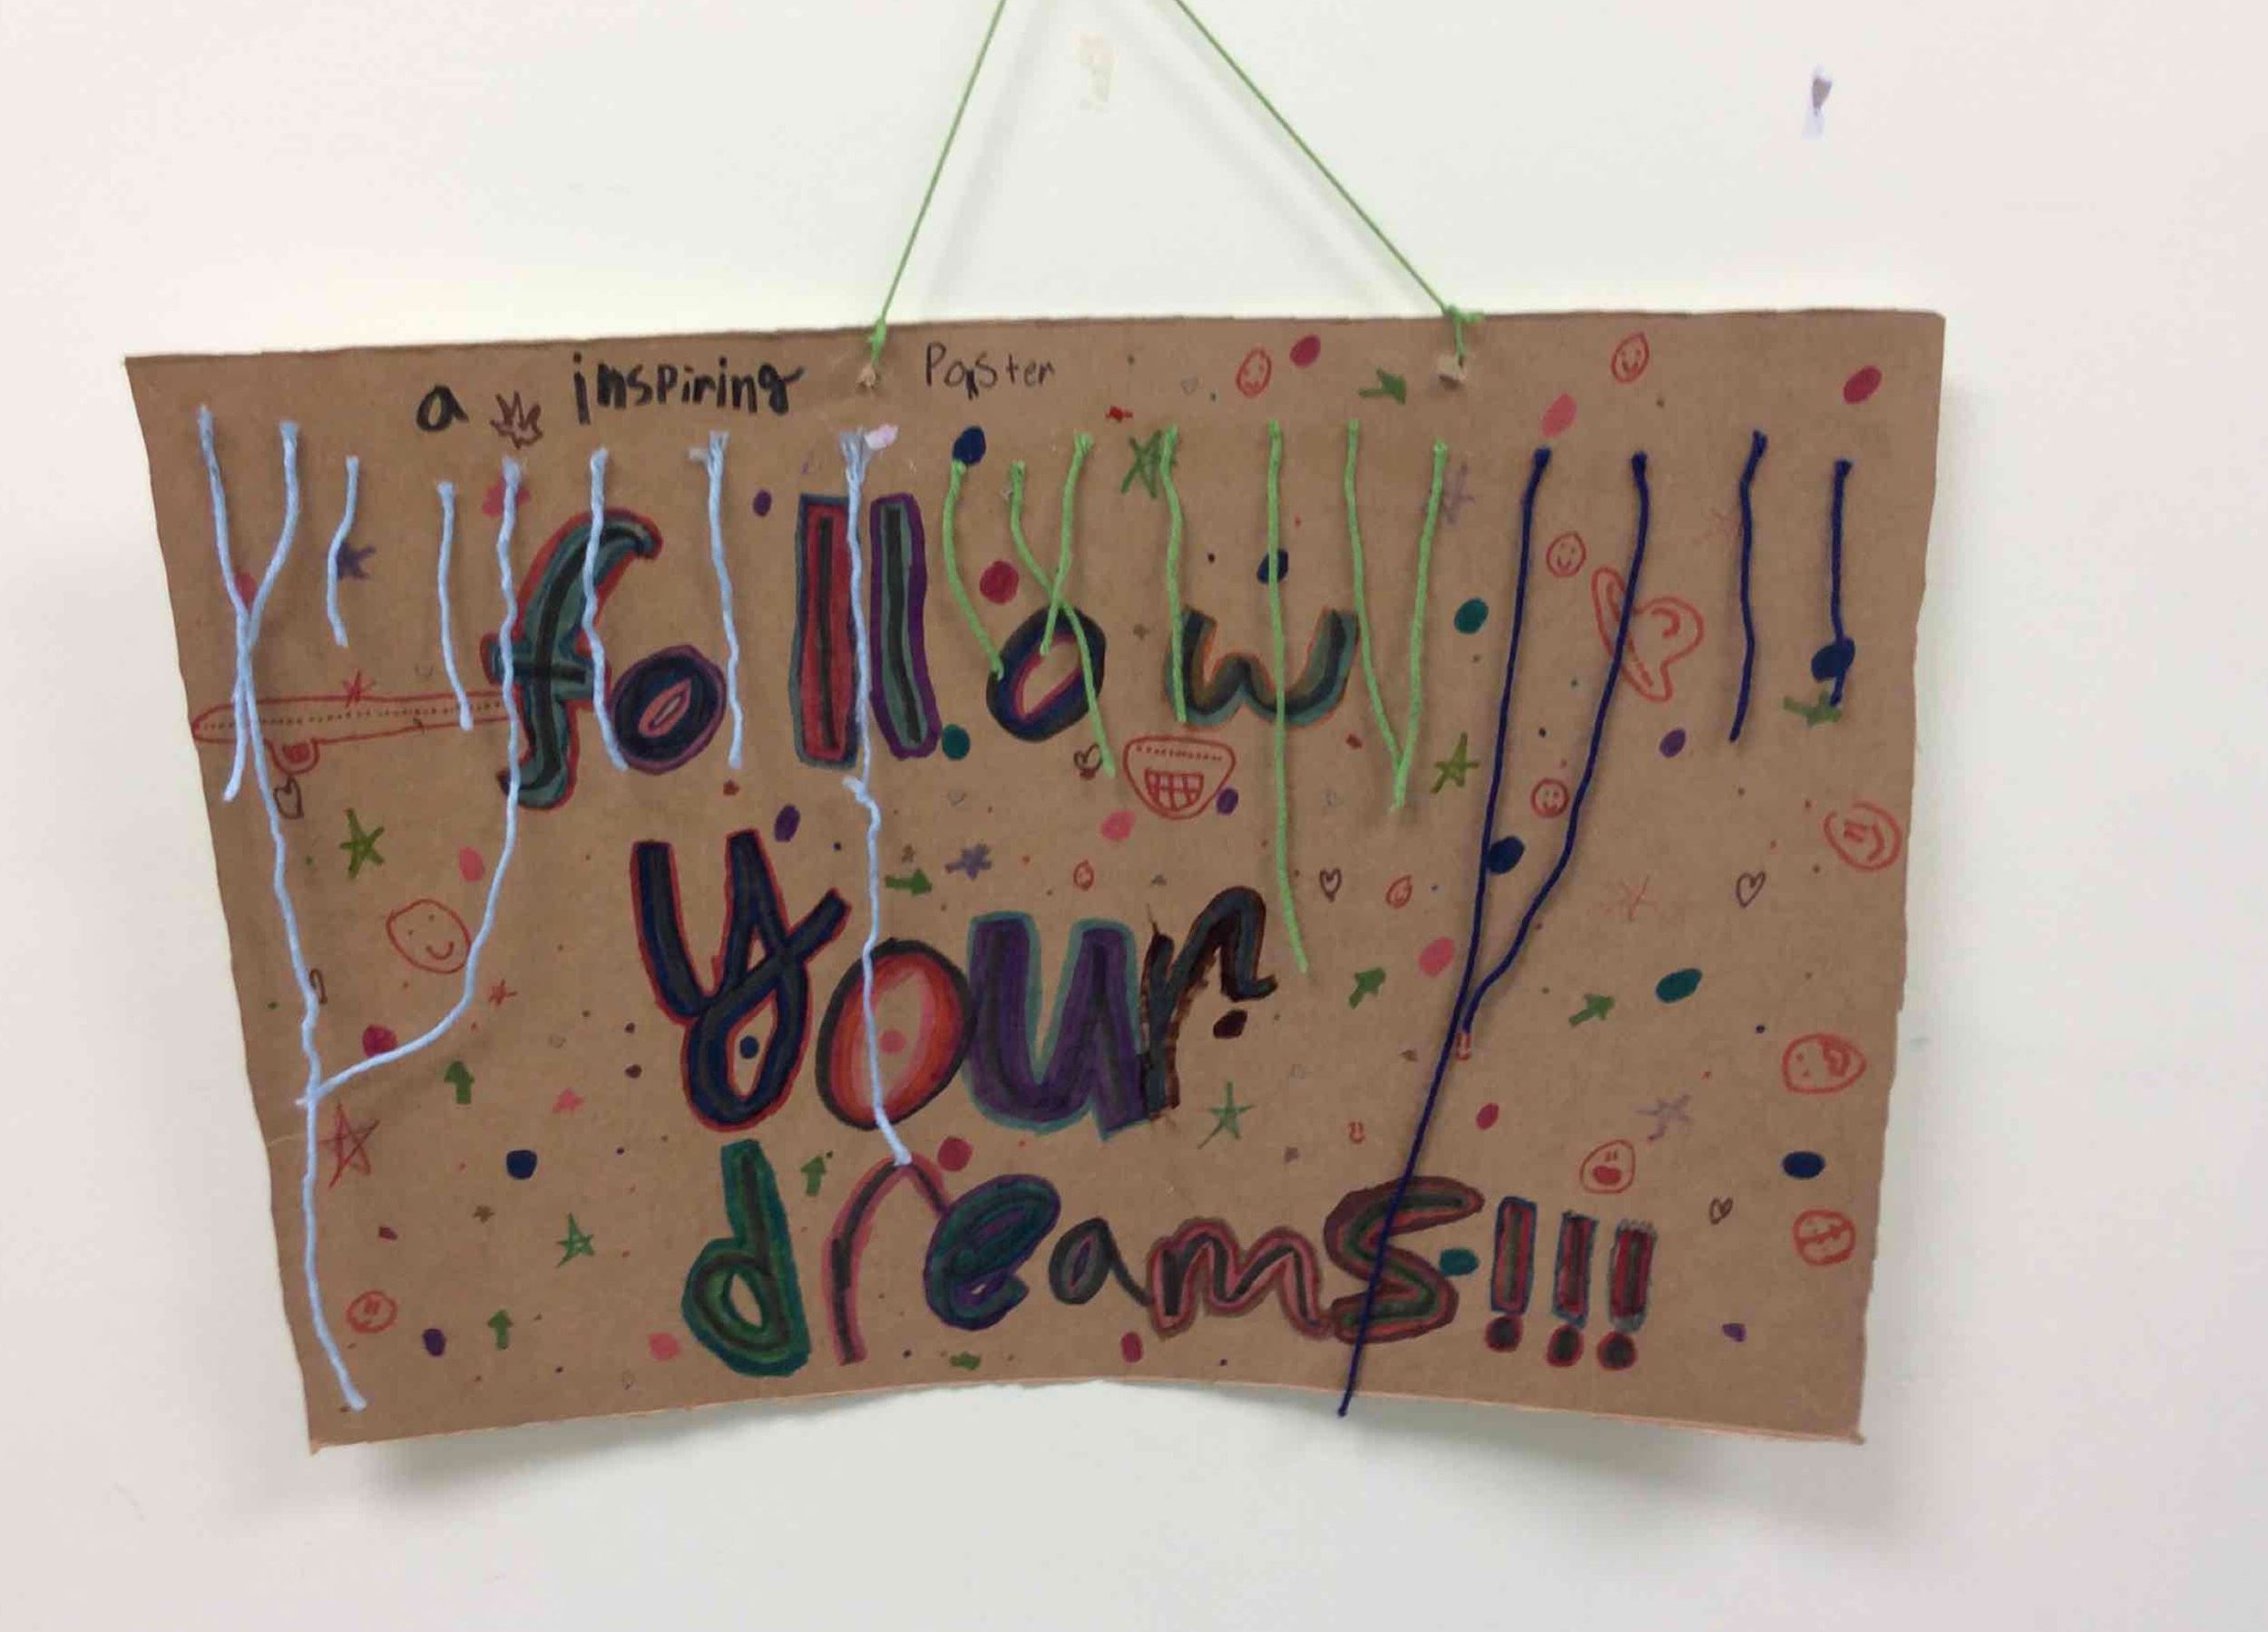 a inspiring Poster
follow
your
dreams!!!